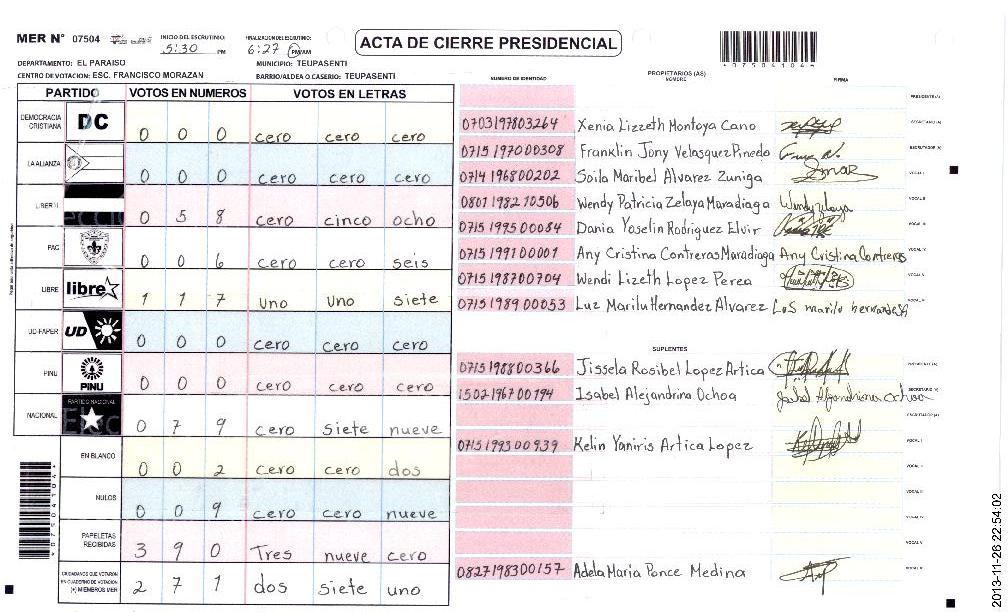 MER N° 07504
INICIO DEL ESCRUTINIO:
5:30 PM
FINALIZACION DEL ESCRUTINIO:
6:27 PM/AM
ACTA DE CIERRE PRESIDENCIAL
DEPARTAMENTO: EL PARAISO
MUNICIPIO: TEUPASENTI
CENTRO DE VOTACION: ESC. FRANCISCO MORAZAN
BARRIO/ALDEA O CASERIO: TEUPASENTI
PARTIDO VOTOS EN NUMEROS VOTOS EN LETRAS
DEMOCRACIA CRISTIANA DC 0 0 0 cero cero cero
LA ALIANZA 0 0 0 cero cero cero
LIBERAL 0 5 8 cero cinco ocho
PAC 0 0 6 cero cero seis
LIBRE libre 1 1 7 uno uno siete
UD-FAPER UD 0 0 0 cero cero cero
PINU PINU 0 0 0 cero cero cero
NACIONAL PARTIDO NACIONAL 0 7 9 cero siete nueve
EN BLANCO 0 0 2 cero cero dos
NULOS 0 0 9 cero cero nueve
PAPELETAS RECIBIDAS 3 9 0 Tres nueve cero
CIUDADANOS QUE VOTARON EN CUADERNO DE VOTACION (+) MIEMBROS MER 2 7 1 dos siete uno
NUMERO DE IDENTIDAD
PROPIETARIOS (AS)
NOMBRE
FIRMA
PRESIDENTE (A)
0703197803264 Xenia Lizzeth Montoya Cano SECRETARIO (A)
0715197000308 Franklin Jony Velasquez Pinedo ESCRUTADOR (A)
0714196800202 Soila Maribel Alvarez Zuniga VOCAL I
0801198210506 Wendy Patricia Zelaya Maradiaga Wendy Zelaya VOCAL II
0715199500084 Dania Yoselin Rodriguez Elvir VOCAL III
0715199100001 Any Cristina Contreras Maradiaga Any Cristina Contreras VOCAL IV
0715198700704 Wendi Lizeth Lopez Perea VOCAL V
0715198900053 Luz Marilu Hernandez Alvarez
SUPLENTES
0715198800366 Jissela Rosibel Lopez Artica PRESIDENTE (A)
1502196700194 Isabel Alejandrina Ochoa SECRETARIO (A)
ESCRUTADOR (A)
0715199300939 Kelin Yaniris Artica Lopez VOCAL I
VOCAL II
VOCAL III
VOCAL IV
VOCAL V
0827198300157 Adela Maria Ponce Medina
2013-11-26 22:54:02